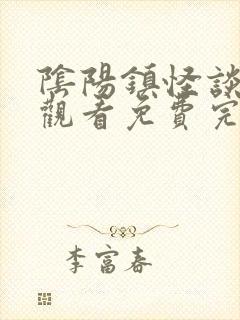 陰陽鎮怪談
觀看免費完
李富春